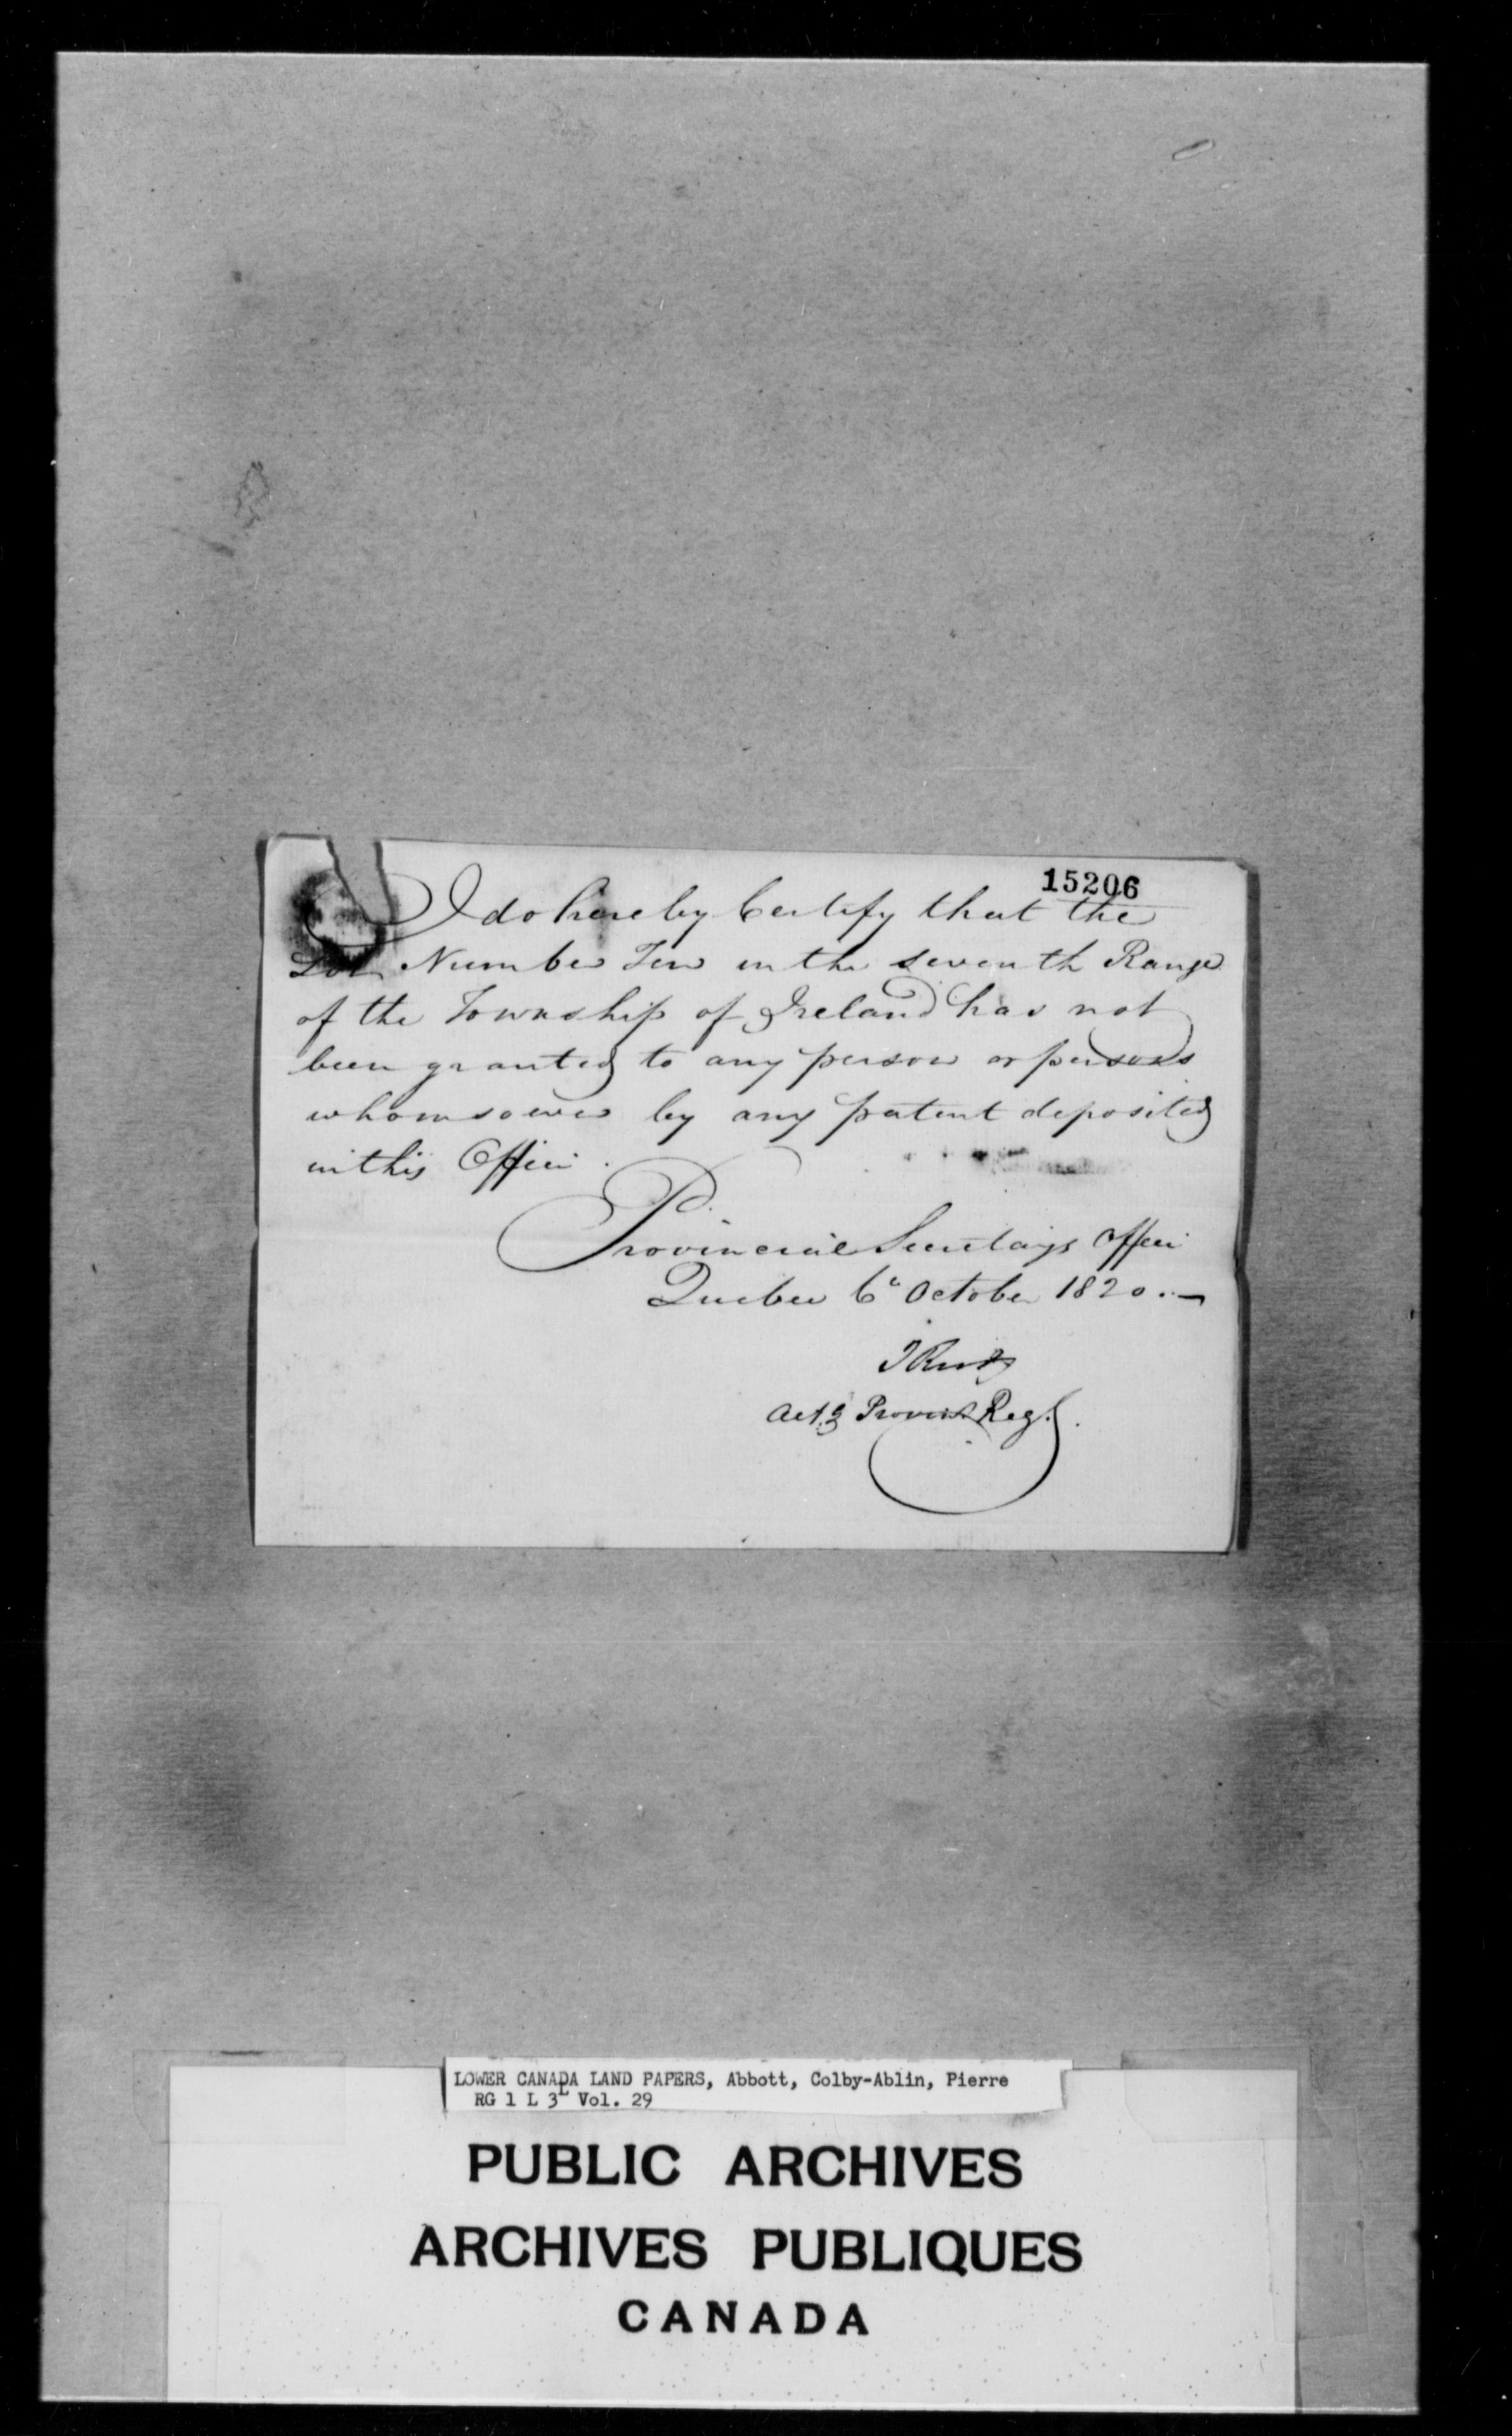 15206
I do hereby Certify that the
Lot Number Ten in the seventh Range
of the Township of Ireland has not
been granted to any person or persons
whomsoever by any patent deposited
in this Office.
Provincial Secretarys Office
Quebec 6th October 1820.
Actg Provinl Regr.
LOWER CANADA LAND PAPERS, Abbott, Colby-Ablin, Pierre
RG 1 L 3L Vol. 29
PUBLIC ARCHIVES
ARCHIVES PUBLIQUES
CANADA